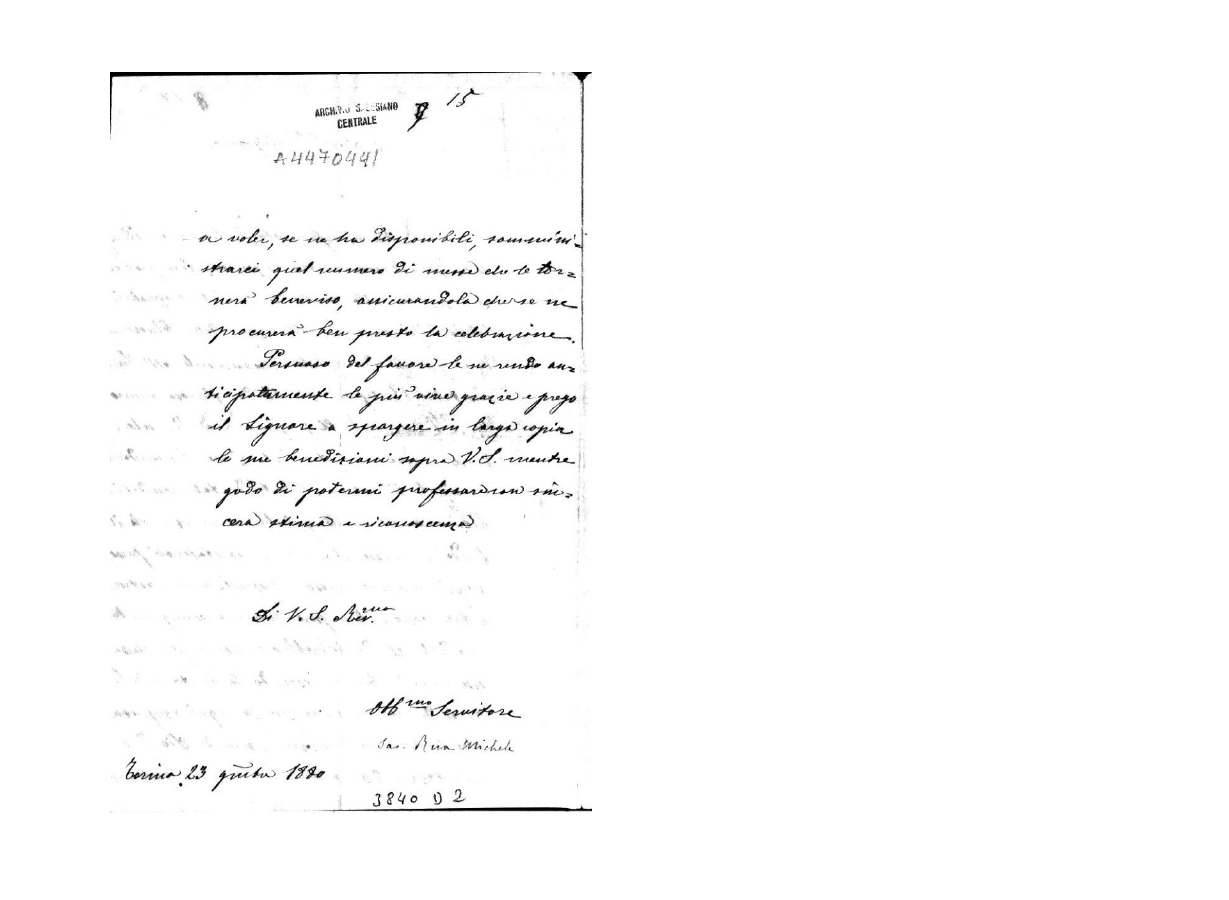 15
ARCHIVIO SALESIANO
CENTRALE
A4470441
a voler, se ne ha disponibili, sommini=
strarci quel numero di messe che le tor=
nerà beneviso, assicurandola che se ne
procurerà ben presto la celebrazione.
Persuaso del favore le ne rendo an=
ticipatamente le più vive grazie e prego
il Signore a spargere in larga copia
le sue benedizioni sopra V. S. mentre
godo di potermi professare con sin=
cera stima e riconoscenza
Di V. S. Rev.ma
Obb.mo Servitore
Sac. Rua Michele
Torino, 23 1880
3840 D 2